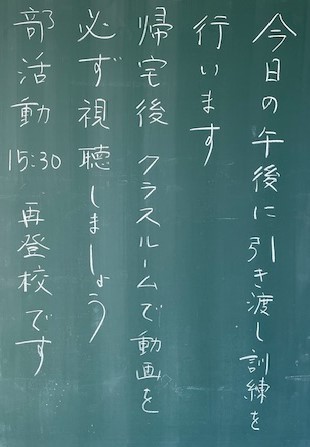 今日の午後に引き渡し訓練を
行います
帰宅後 クラスルームで動画を
必ず視聴しましょう
部活動 15:30 再登校です